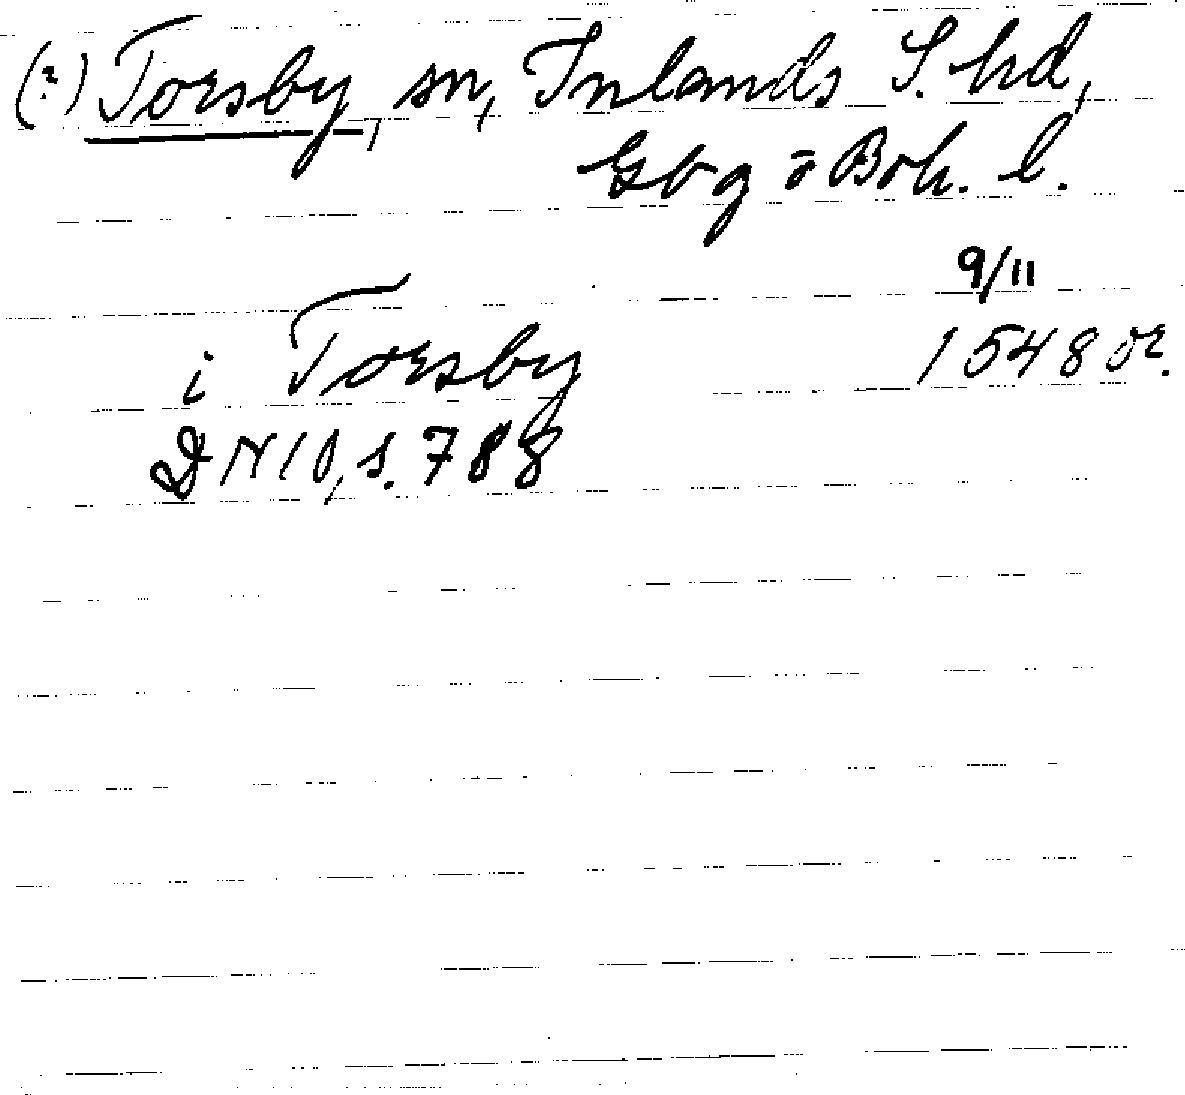 (?) Torsby, sn, Inlands S. hd,
Gbg o Boh. l.
9/11
i Torsby 1548 or.
DN 10, s. 788